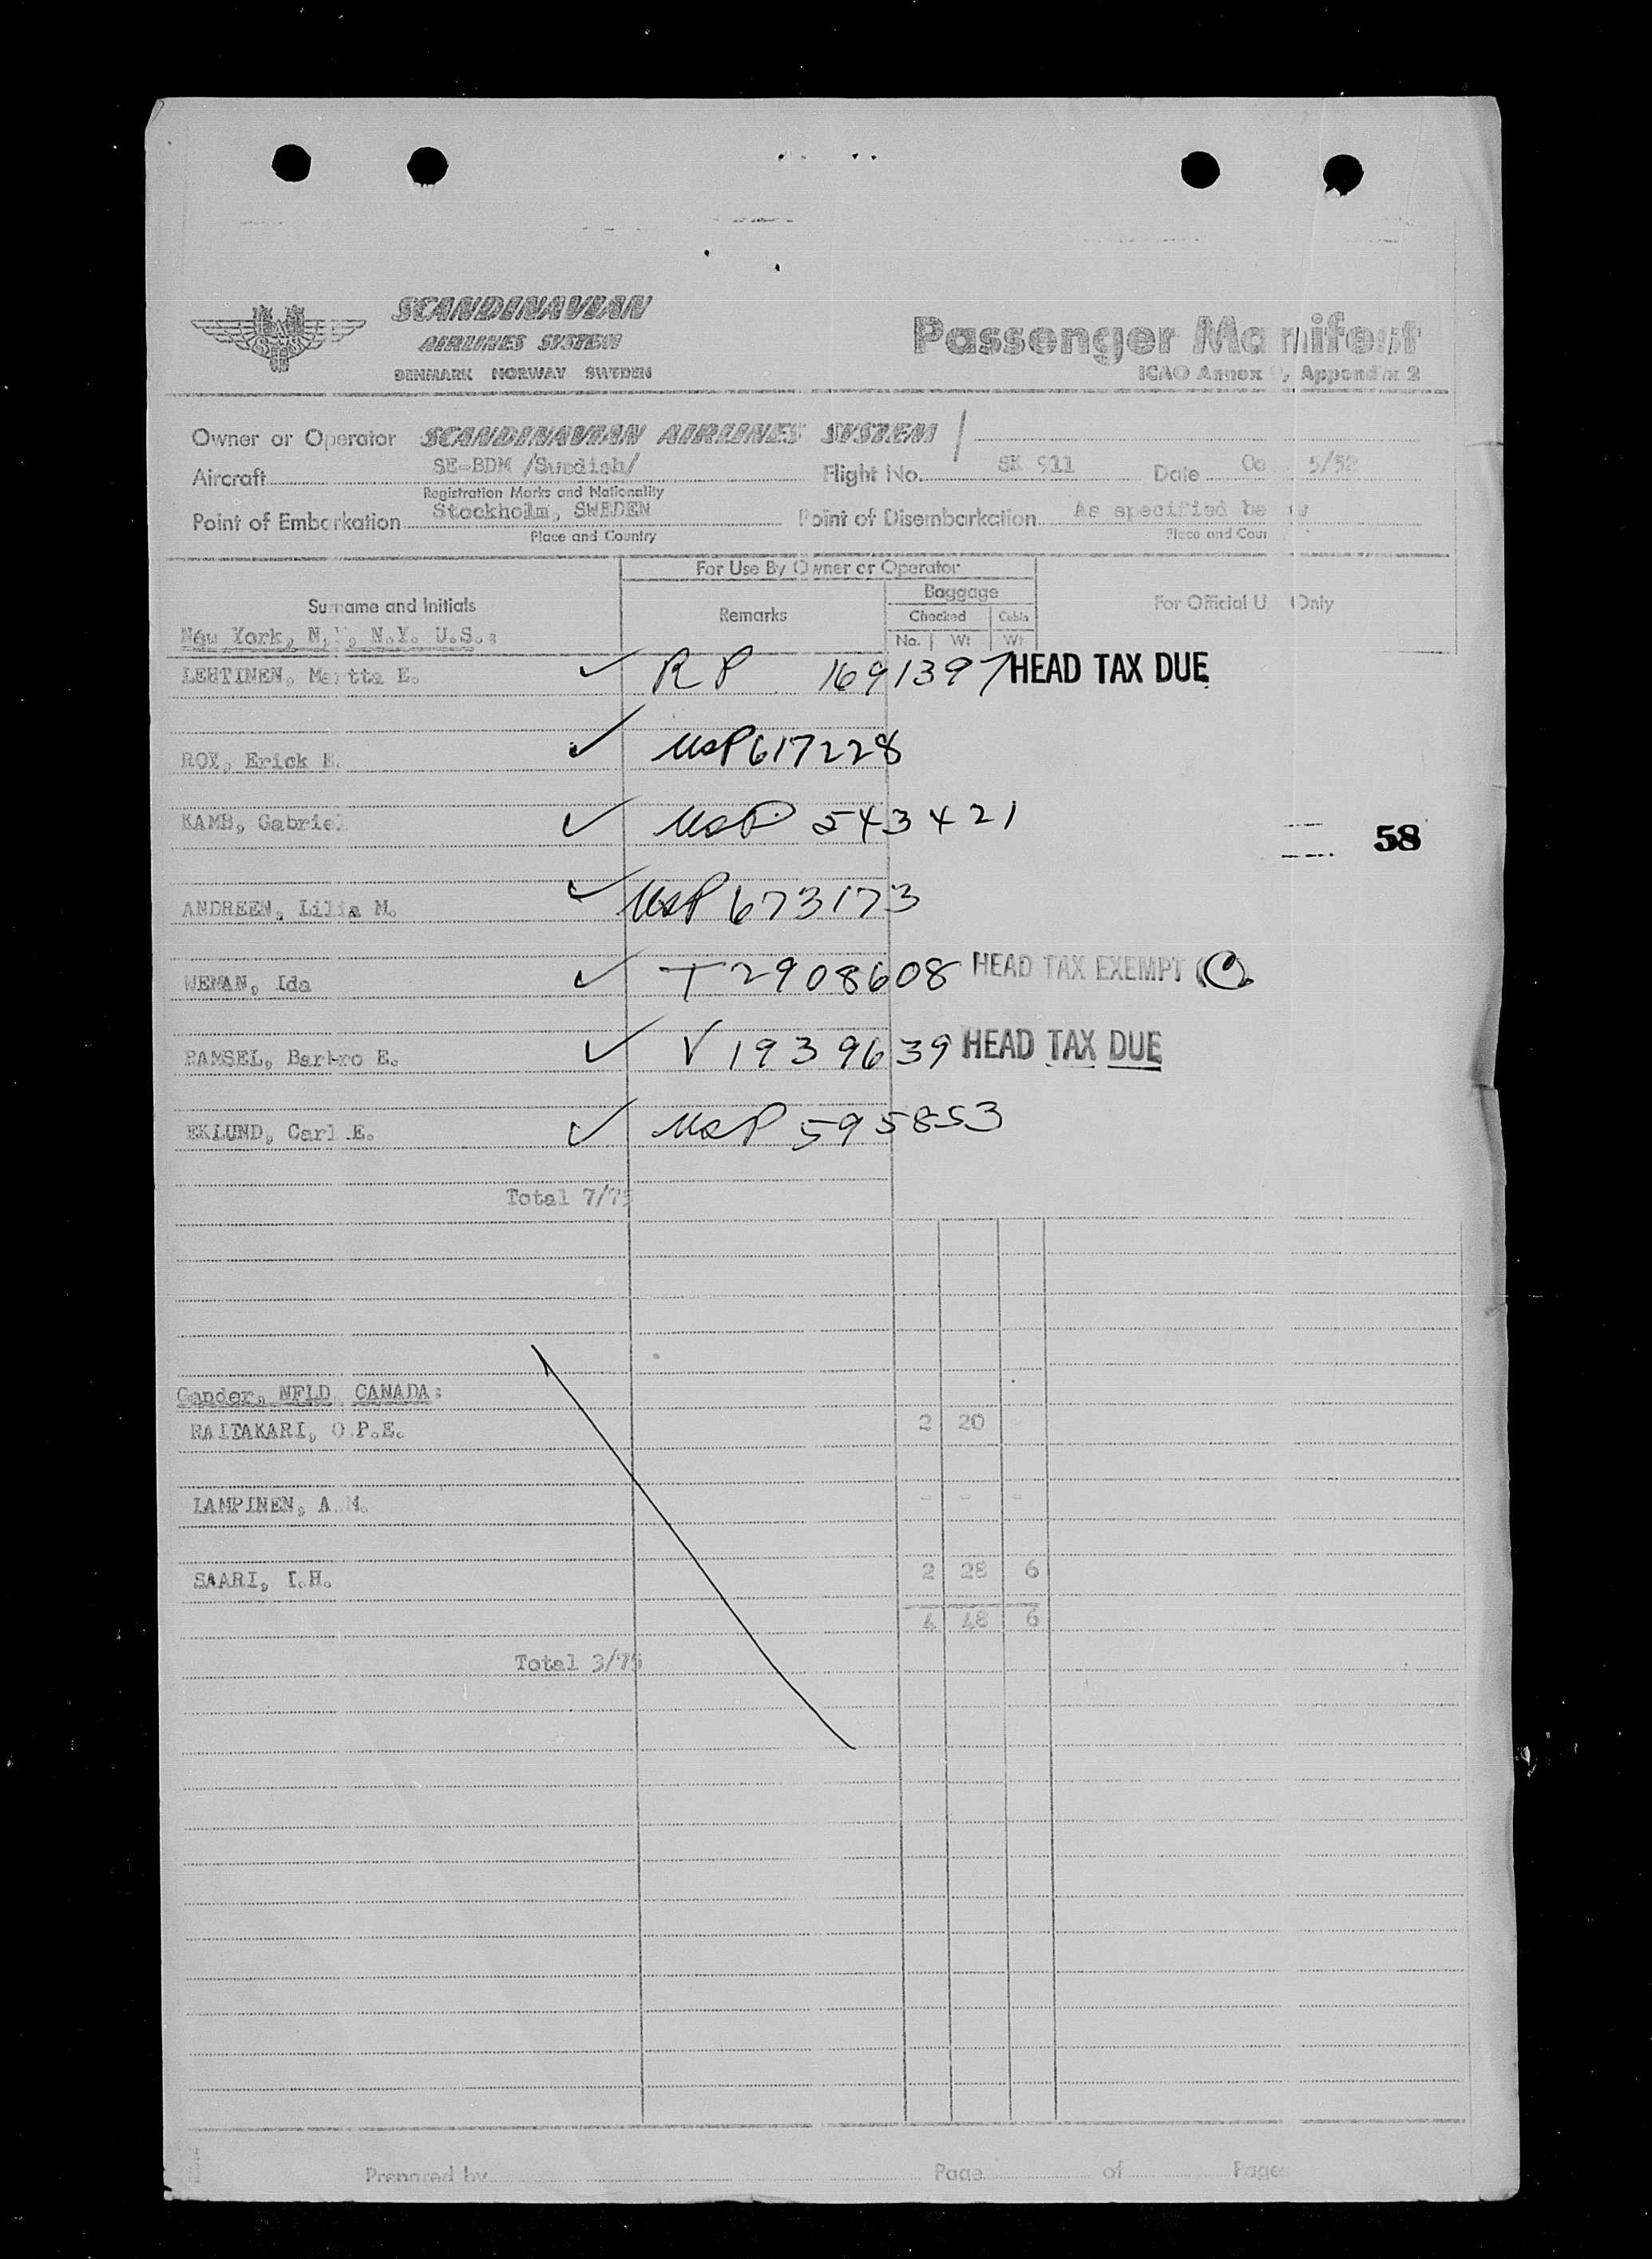 SCANDINAVIAN
AIRLINES SYSTEM
DENMARK NORWAY SWEDEN
Passenger Manifest
ICAO Annex 9, Appendix 2
Owner or Operator SCANDINAVIAN AIRLINES SYSTEM
Aircraft SE-BDM /Swedish/ Flight No. SK 911 Date 5/52
Registration Marks and Nationality
Point of Embarkation Stockholm, SWEDEN Point of Disembarkation As specified
Place and Country Place and
For Use By Owner or Operator
Surname and Initials Remarks Baggage For Official U Only
Checked Cabin
No. Wt Wt
New York, N.Y. U.S.:
LEHTINEN, Martta E. ✓ RP 1691397 HEAD TAX DUE
ROY, Erick E. ✓ USP 617228
KAMB, Gabriel ✓ USP 543421
58
ANDREEN, Lilia M. ✓ USP 673173
WEMAN, Ida ✓ T 2908608 HEAD TAX EXEMPT (C)
RAMSEL, Barbro E. ✓ V 1939639 HEAD TAX DUE
EKLUND, Carl E. ✓ USP 595853
Total 7/75
Gander, NFLD, CANADA:
RAITAKARI, O.P.E. 2 20 -
LAMPINEN, A.M. - - -
SAARI, I.H. 2 28 6
4 48 6
Total 3/75
Prepared by Page of Pages